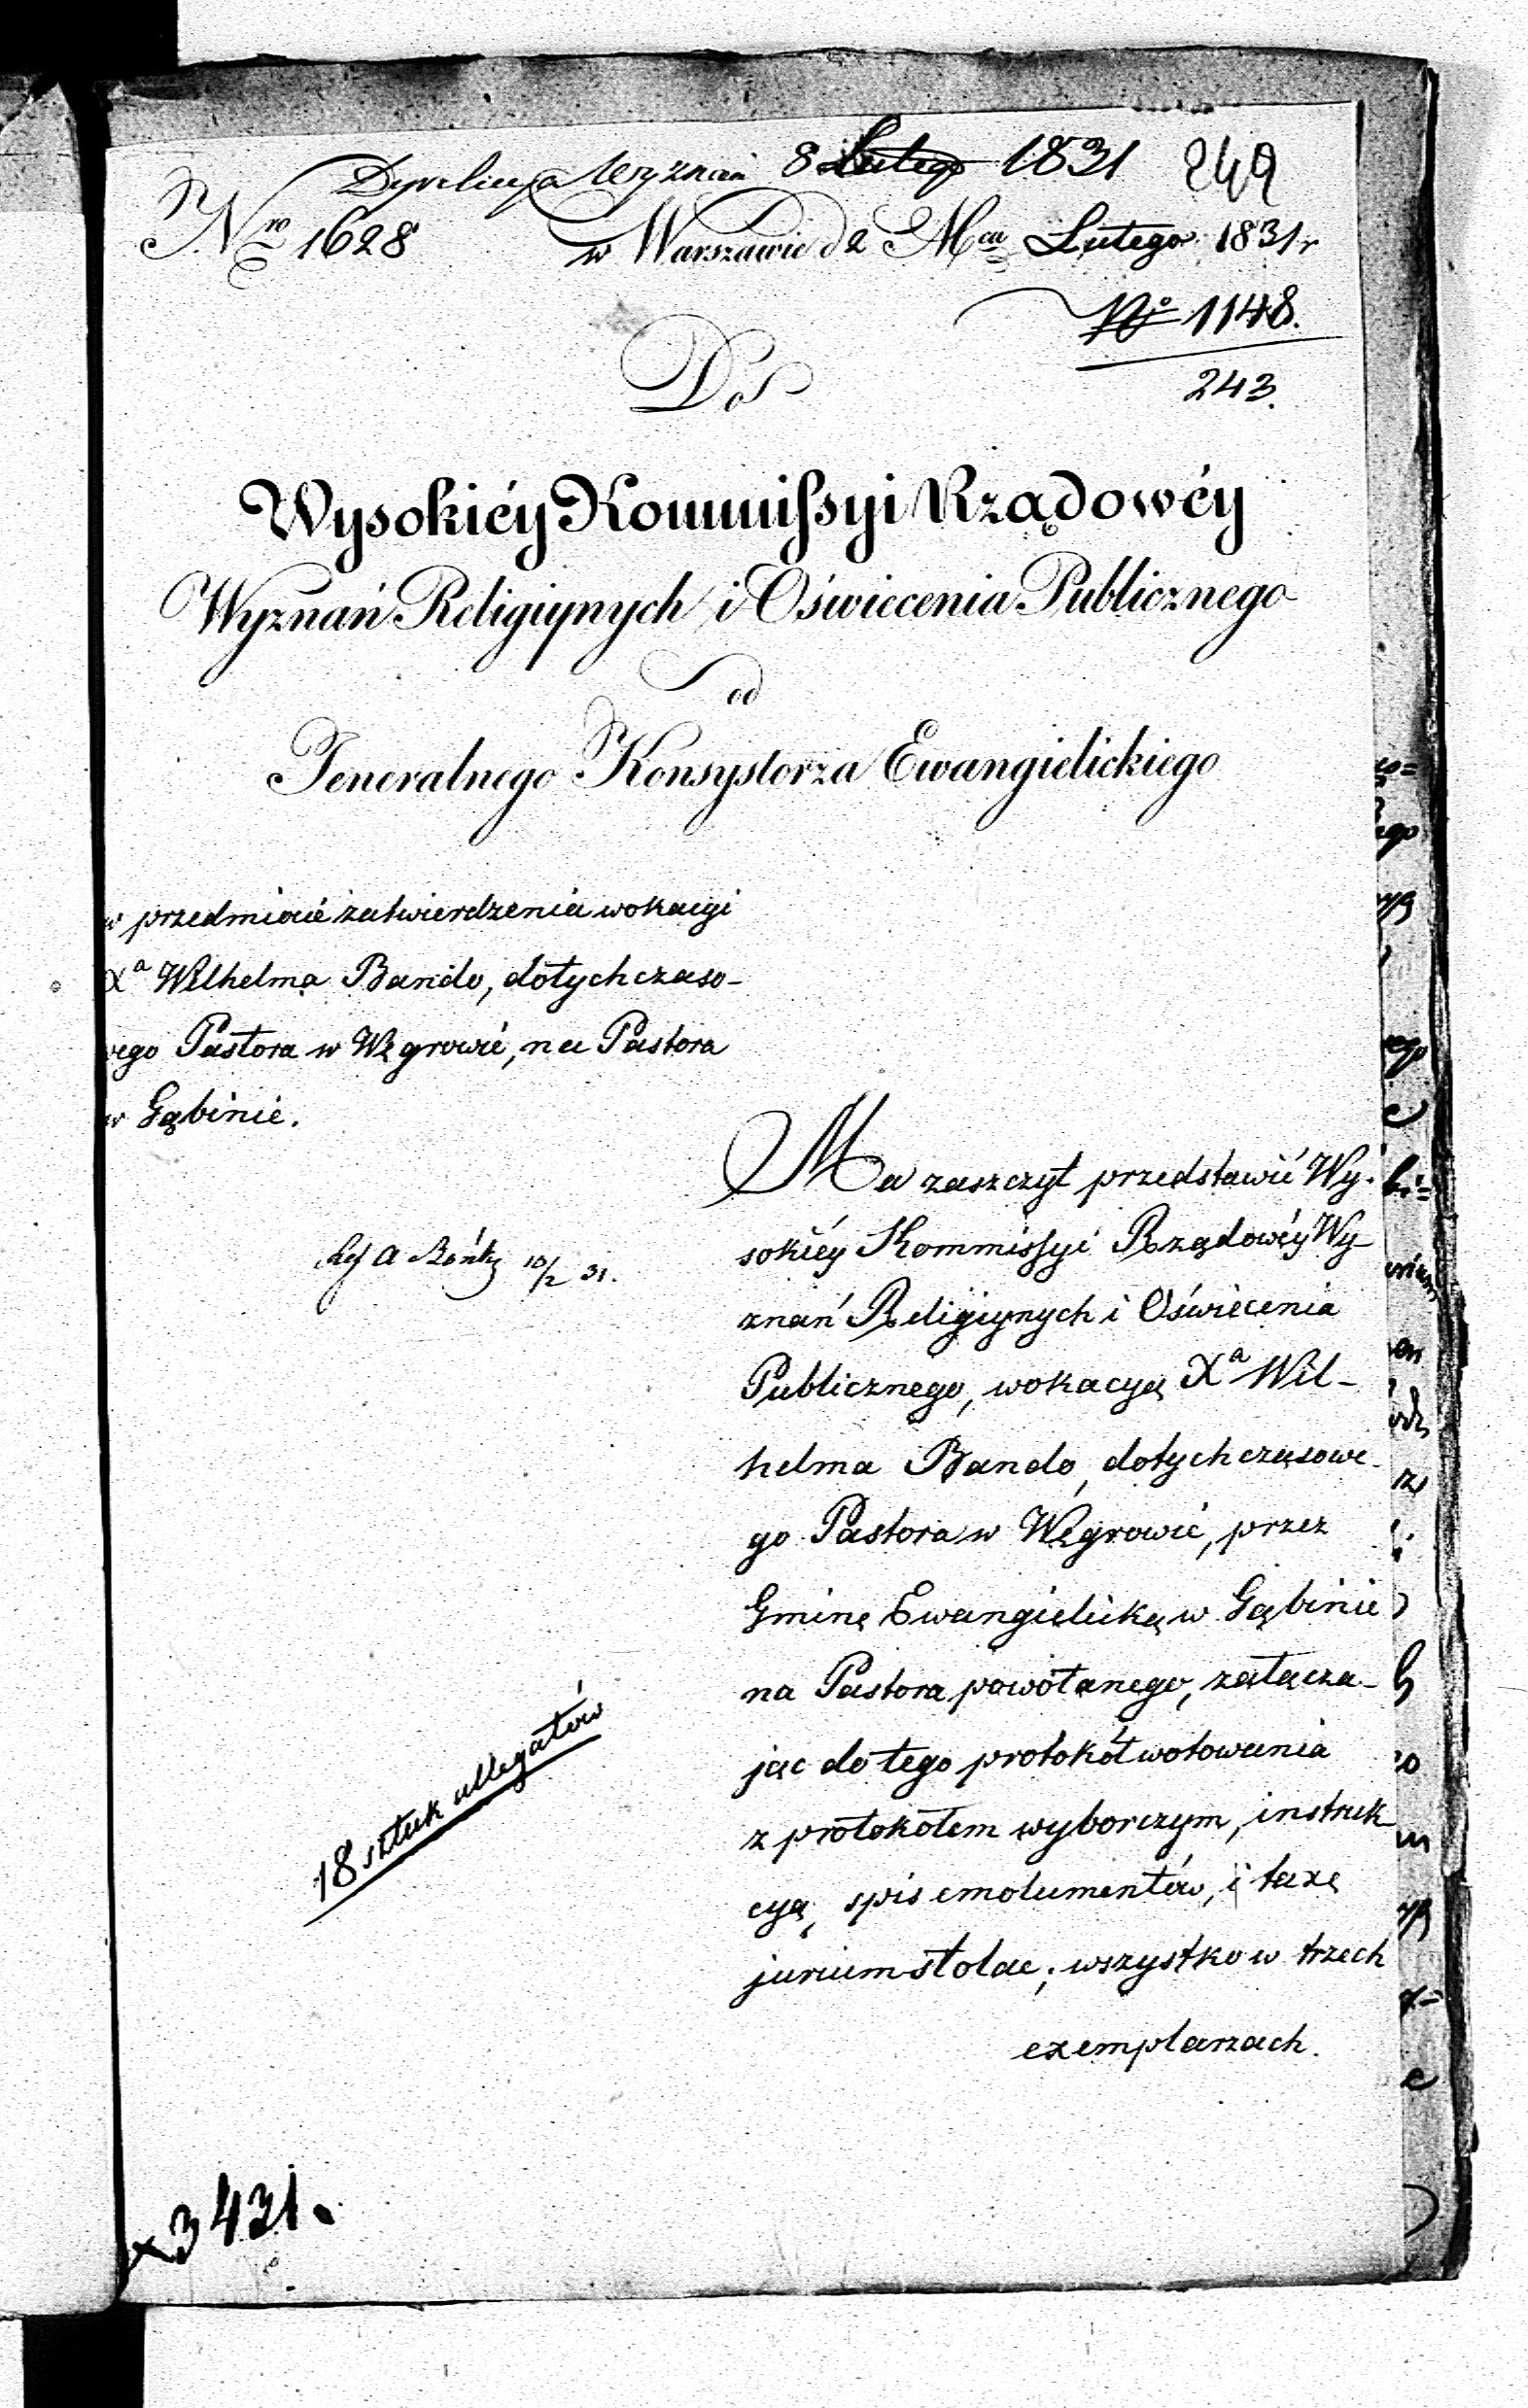 Dyrekcya Wyznań 8 Lutego 1831 249
Nro 1628 w Warszawie d 2 Mca Lutego 1831 r
No 1148.
243.
Do
Wysokiéy Kommissyi Rządowéy
Wyznań Religiynych i Oświecenia Publicznego
od
Jeneralnego Konsystorza Ewangielickiego
w przedmiocie zatwierdzenia wokacyi
Xa Wilhelma Bando, dotychczaso-
wego Pastora w Węgrowie, na Pastora
w Gąbinie.
Ma zaszczyt przedstawić Wy-
sokiéy Kommissyi Rządowéy Wy-
znań Religiynych i Oświecenia
Publicznego, wokacyą Xa Wil-
helma Bando, dotychczasowe-
go Pastora w Węgrowie, przez
Gminę Ewangielicką w Gąbinie
na Pastora powołanego, załącza-
jąc do tego protokół wotowania
z protokołem wyborczym, instruk-
cyą, spis emolumentów, i taxę
jurium stolae; wszystko w trzech
exemplarzach.
10/2 31.
18 sztuk allegatów
x3431.